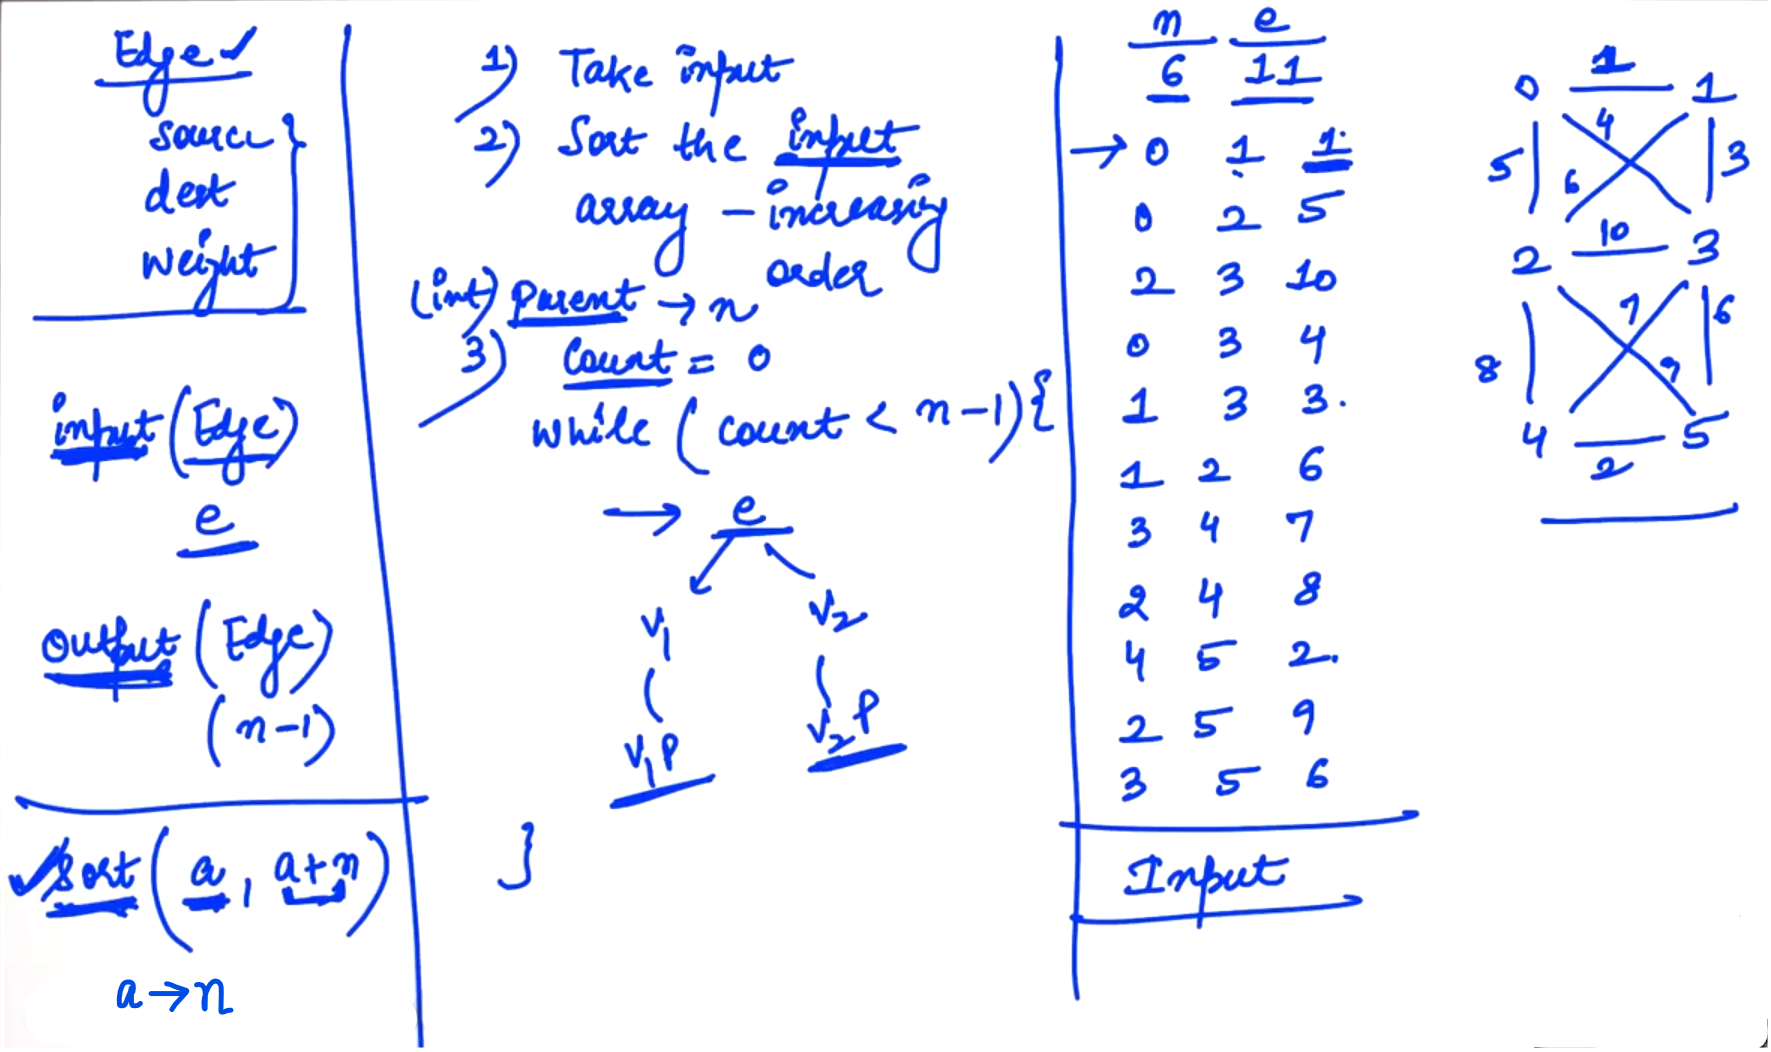 Edge ✓
source
dest
weight
input (Edge)
e
output (Edge)
(n-1)
✓ Sort (a, a+n)
a → n
1) Take input
2) Sort the input
array - increasing
order
(int) Parent → n
3) Count = 0
while (count < n-1) {
→ e
v1 v2
v1P v2P
}
n e
6 11
→ 0 1 1
0 2 5
2 3 10
0 3 4
1 3 3
1 2 6
3 4 7
2 4 8
4 5 2
2 5 9
3 5 6
Input
1
0 1
4
5 6 3
10
2 3
7 6
8 9
4 5
2